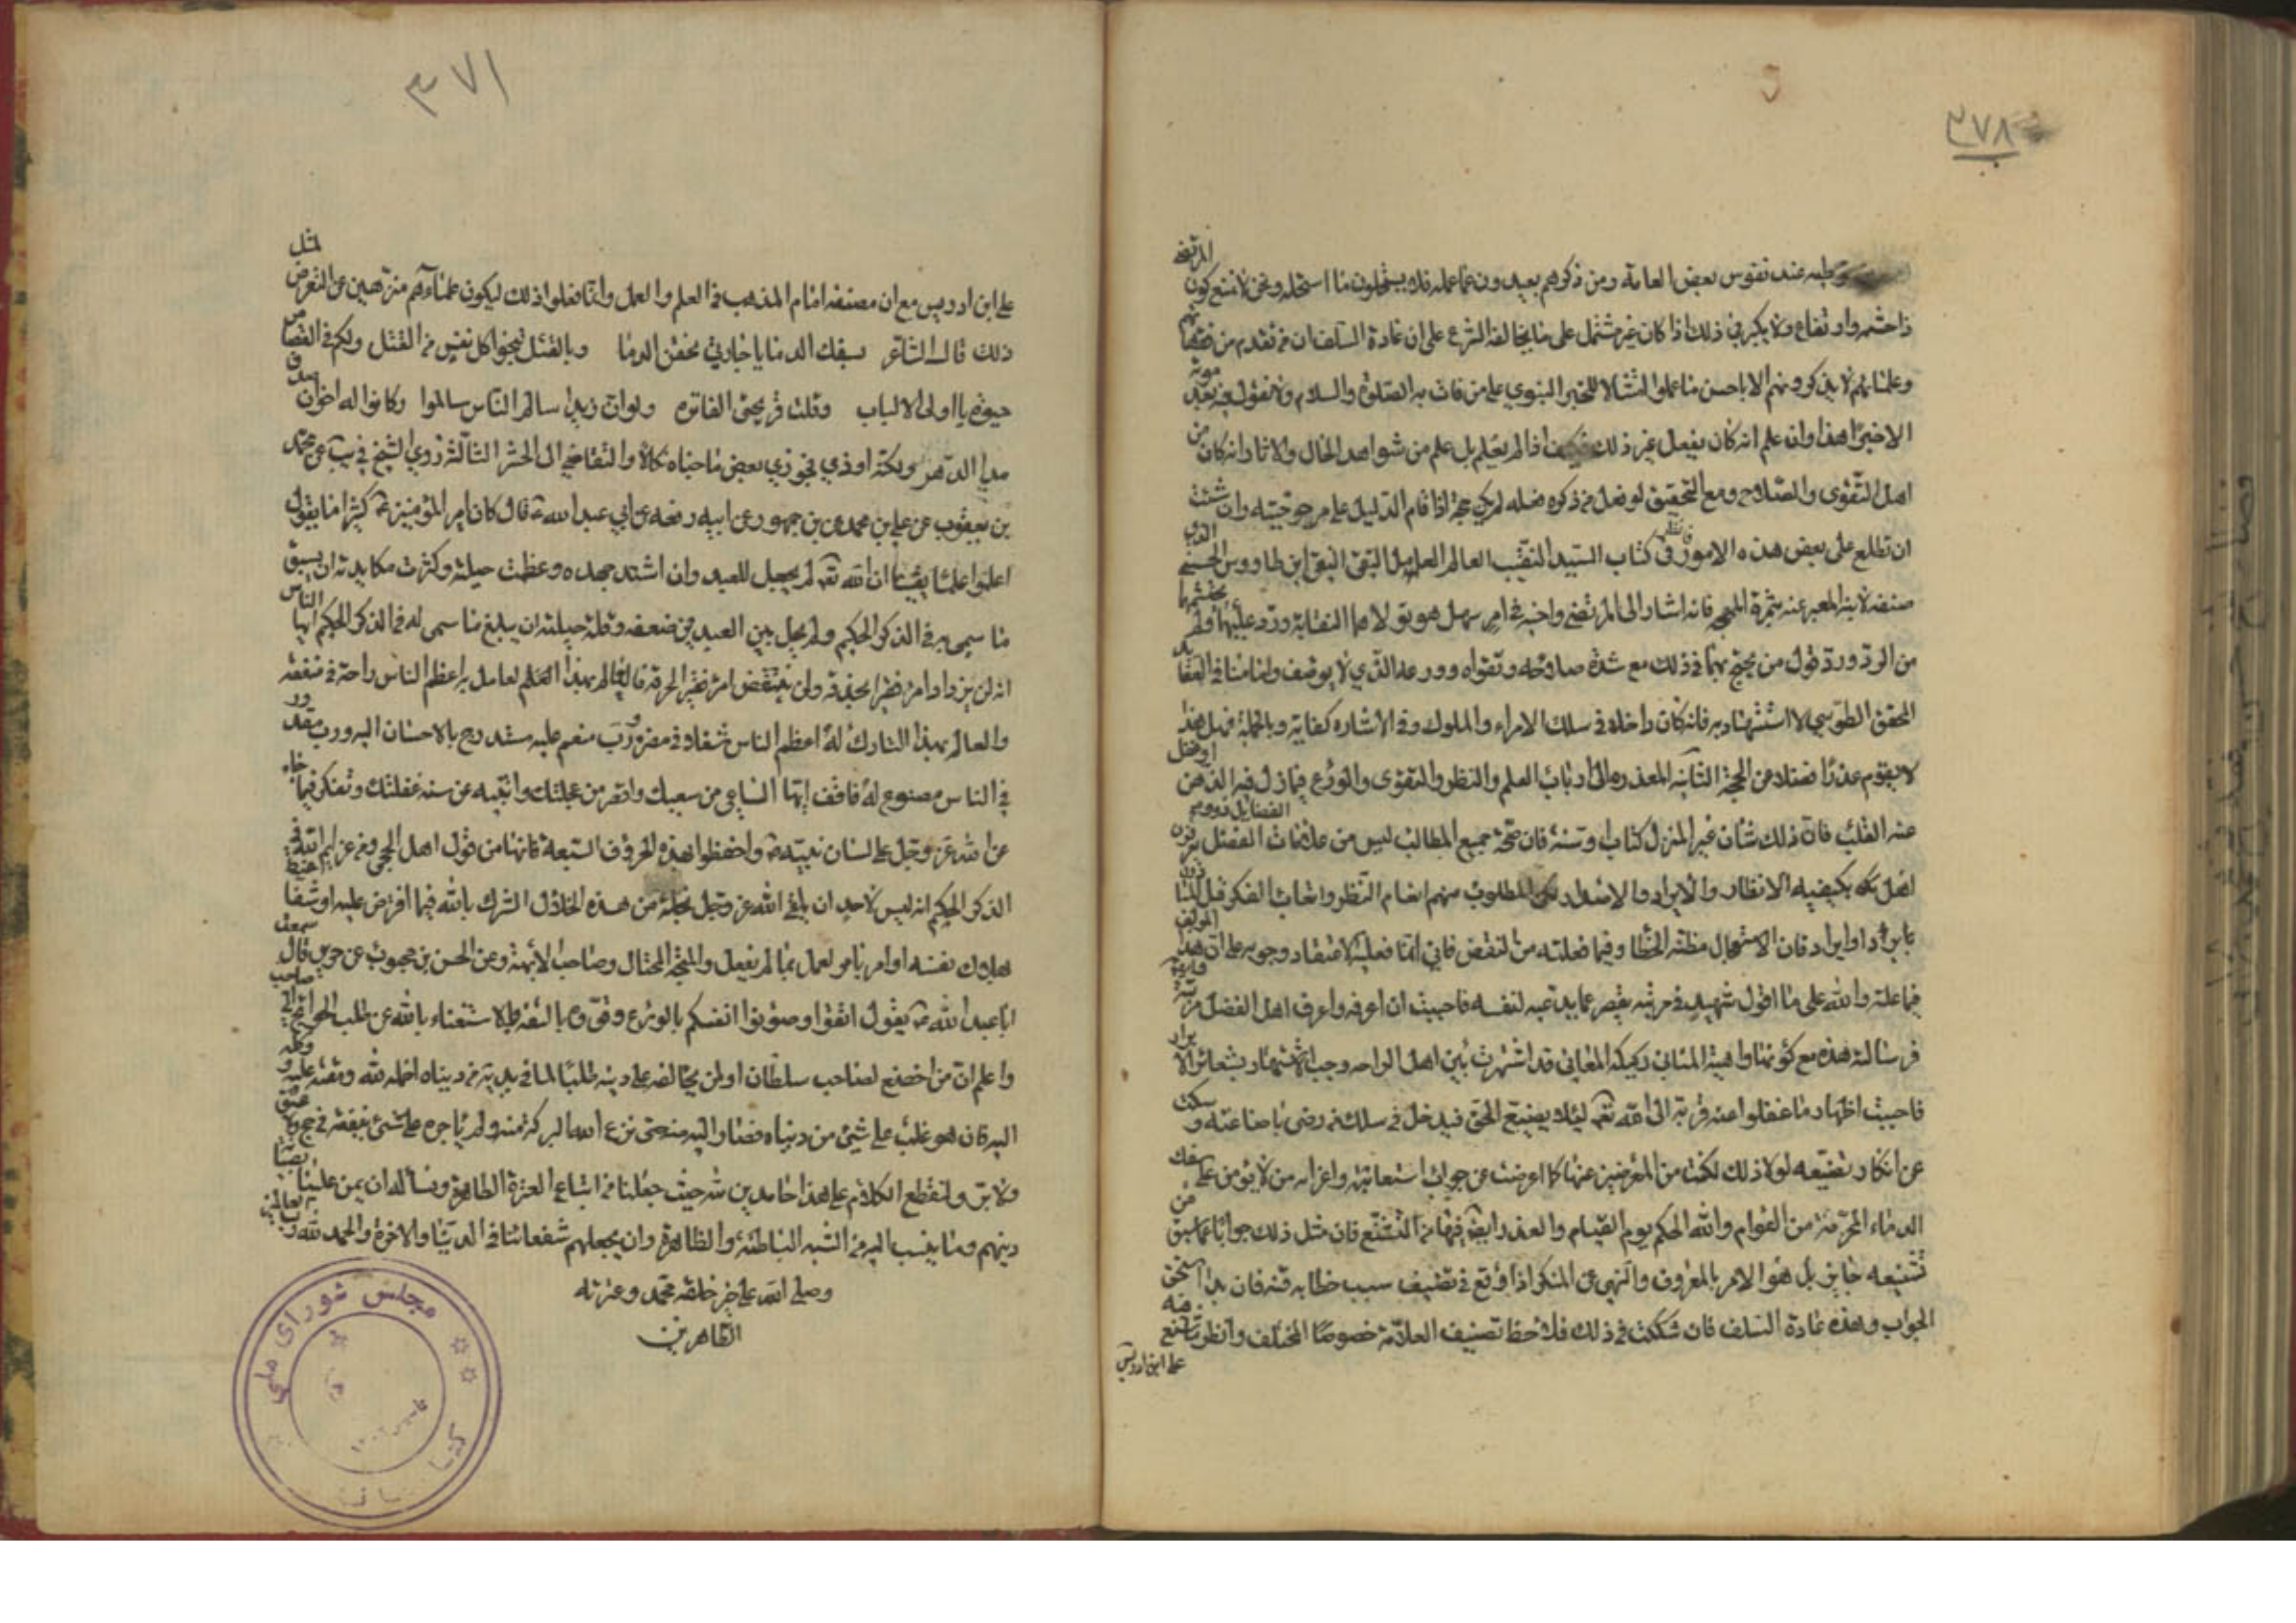 ٣٧٨
عند نفوس بعض العامة ومن ذكرهم بعيدون عما عمله فلا يستحلون ما استحله ونحن لا نمنع كون المرتضى
ذا حشمة وارتفاع ولا يكبر في ذلك اذا كان غير مشتمل على ما يخالف الشرع على ان عادة السلف ان من تقدم من
وعلمائهم لا يذكرونهم الا باحسن ما عملوا امتثالا للخبر النبوي على من فات به الصلوة والسلام ولا نقول فيه بعد موته
الا خيرا هذا وان علم انه كان يفعل غير ذلك فكيف اذا لم يعلم بل علم من شواهد الحال والاثار انه كان من
اهل التقوى والصلاح ومع التحقيق لو فعل من ذكره فعله لم يكن حجة اذا قام الدليل على مرجوحيته وان شئت
ان تطلع على بعض هذه الامور فانظر في كتاب السيد النقيب العالم العامل التقي النقي ابن طاووس الحسني الذي
صنفه لابنه المعبر عنه بثمرة المهجة فانه اشار الى المرتضى واخيه في امر سهل هو تولاهما النقابة ورد عليهما
من الرد ورد قول من يحتج بهما في ذلك مع شدة صلاحه وتقواه وورعه الذي لا يوصف وامامنا في
المحقق الطوسي لا استشهاد به فانه كان داخلا في سلك الامراء والملوك وفي الاشارة كفاية وبالجملة فمثل هذا
لا يقوم عذرا فضلا عن الحجة الثانية المعذرة الى ارباب العلم والنظر والتقوى والورع فيما زل فيه الذهن او غفل
عنه القلب فان ذلك شان غير المنزل كتابا وسنة فان صحة جميع المطالب ليس من علامات الفضل
بكيفية الانظار والايراد والاستدلال المطلوب منهم انعام النظر واتعاب الفكر قبل
بايراد او ايراد فان الاستعجال مظنة الخطا وفيما فعلته من النقض فاني انما فعلته لاعتقاد وجوبه على ان هذا المؤلف
فيما علمته والله على ما اقول شهيد في مرتبة يقصر عما يدعيه لنفسه فاحببت ان اعرفه واعرف اهل الفضل مرتبته
في رسالته هذه مع كونها واهية المباني ركيكة المعاني قد اشتهرت بين اهل الراحة وحب الاشتهار بشعائر الابرار
فاحببت اظهار ما غفلوا عنه قربة الى الله تعالى لئلا يضيع الحق فيدخل في سلك من رضى باضاعته وسكت
عن انكار تضييعه لولا ذلك لكنت من المعرضين عنها كما اعرضت عن جواب
الدماء المحرمة من العوام والله الحكم يوم القيام والعذر ايضا فيما من التشنع فان مثل ذلك جوابا عما سبق من
تشنيعه جايز بل هو الامر بالمعروف والنهي عن المنكر اذا وقع في تصنيف سبب خطابه فتنة فان
الجواب وهذه عادة السلف فان شككت في ذلك فلاحظ تصنيف العلامة خصوصا المختلف وانظر
على ابن ادريس
٣٧١
على ابن ادريس مع ان مصنفه امام المذهب في العلم والعمل وانما فعلوا ذلك ليكون علماءهم منزهين عن التعرض لمثل
ذلك قال الشاعر بسفك الدما يا جارتي تحقن الدما وبالقتل تنجو كل نفس من القتل ولكم في القصاص
حيوة يا اولي الالباب وقلت قريحتي الفاتره ولو ان زيدا سالم الناس سالموا وكانوا له اخوان صدق
مدا الدهر ولكنه اوذي فجوزي بعض ما جناه نكالا والتقاضي الى الحشر الثالثة روى الشيخ في يب عن محمد
بن يعقوب عن علي بن محمد عن بن جمهور عن ابيه رفعه عن ابي عبد الله ع قال كان امير المؤمنين ع كثيرا ما يقول
اعلموا علما يقينا ان الله تعالى لم يجعل للعبد وان اشتد جهده وعظمت حيلته وكثرت مكايدته ان يسبق
ما سمى به في الذكر الحكيم ولم يحل بين العبد في ضعفه وقلة حيلته ان يبلغ ما سمى له في الذكر الحكيم ايها الناس
انه لن يزداد امرؤ نقيرا بحذقه ولن ينتقص امرؤ نقيرا لخرقه فالعالم بهذا العلم العامل به اعظم الناس راحة في منفعته
والعالم بهذا التارك له اعظم الناس شغلا في مضرة ورب منعم عليه مستدرج بالاحسان اليه ورب مغرور
في الناس مصنوع له فافق ايها الساعي من سعيك واقصر من عجلتك وانتبه عن سنة غفلتك وتفكر فيما جاء
عن الله عز وجل على لسان نبيه ص واحفظوا هذه الحروف السبعة فانها من قول اهل الحجى ومن عزايم الله في
الذكر الحكيم انه ليس لاحد ان يلقى الله عز وجل بخلة من هذه الخلال الشرك بالله فيما افترض عليه او شفا غيظ
بهلاك نفسه او امر يامر بعمل بما لم يفعل والمتجبر المختال وصاحب الابهة وعن الحسن بن محبوب عن حريز قال سمعت
ابا عبد الله ع يقول اتقوا وصونوا انفسكم بالورع وقووه بالتقية والاستغناء بالله عن طلب الحوائج الى صاحب
واعلم ان من خضع لصاحب سلطان او لمن يخالفه على دينه طلبا لما في يديه من دنياه اخمله الله ومقته عليه ووكله
اليه فان هو غلب على شيئ من دنياه فصار اليه منه شيئ نزع الله البركة منه ولم ياجره على شيئ ينفقه في حج ولا عتق
ولا بر ولنقطع الكلام على هذا حامدين لله حيث جعلنا من اتباع العترة الطاهرة ونساله ان يمن علينا
دينهم وما ينسب اليه من الشبه الباطنة والظاهرة وان يجعلهم شفعائنا في الدنيا والاخرة والحمد لله رب العالمين
وصلى الله على خير خلقه محمد وعترته
الطاهرين
مجلس شورای ملی